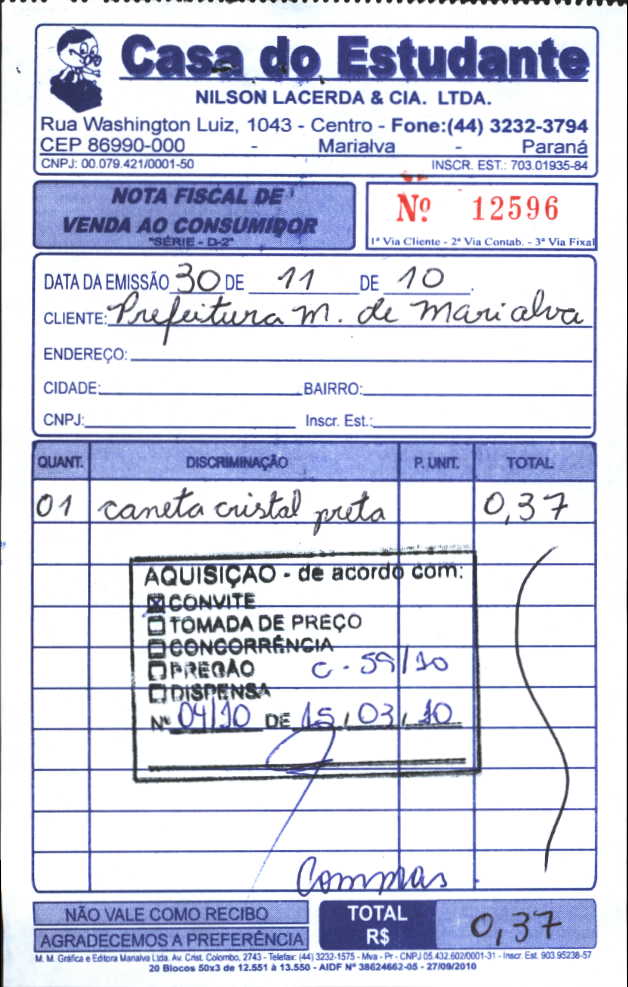 Casa do Estudante
NILSON LACERDA & CIA. LTDA.
Rua Washington Luiz, 1043 - Centro - Fone:(44) 3232-3794
CEP 86990-000 - Marialva - Paraná
CNPJ: 00.079.421/0001-50 INSCR. EST.: 703.01935-84
NOTA FISCAL DE
VENDA AO CONSUMIDOR
"SÉRIE - D-2"
Nº 12596
1ª Via Cliente - 2ª Via Contab. - 3ª Via Fixa
DATA DA EMISSÃO 30 DE 11 DE 10
CLIENTE: Prefeitura M. de Marialva
ENDEREÇO:
CIDADE: BAIRRO:
CNPJ: Inscr. Est.:
QUANT. DISCRIMINAÇÃO P. UNIT. TOTAL
01 caneta cristal preta 0,37
AQUISIÇÃO - de acordo com:
CONVITE
TOMADA DE PREÇO
CONCORRÊNCIA
PREGÃO C - 59/10
DISPENSA
Nº 04/10 DE 15, 03, 10
Compras
NÃO VALE COMO RECIBO
AGRADECEMOS A PREFERÊNCIA
TOTAL R$ 0,37
M. M. Gráfica e Editora Marialva Ltda. Av. Crist. Colombo, 2743 - Telefax: (44) 3232-1575 - Mva - Pr - CNPJ 05.432.602/0001-31 - Inscr. Est. 903.95238-57
20 Blocos 50x3 de 12.551 à 13.550 - AIDF Nº 38624662-05 - 27/09/2010